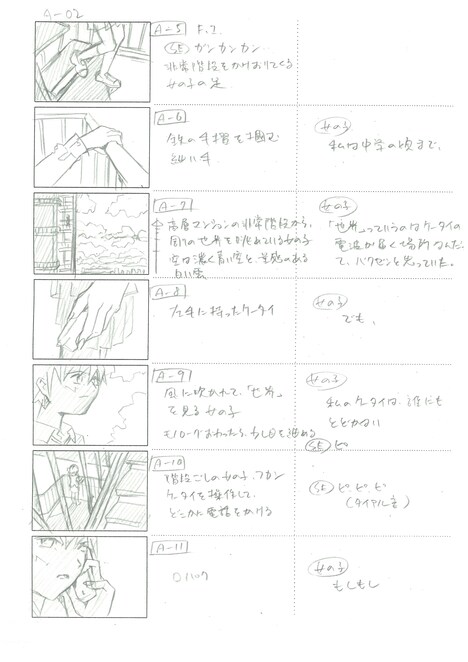 A-02
A-5
SE ガンカンカン…
非常階段をかけおりてくる
女の子の足
A-6
鉄の手摺を掴む
細い手
女の子
私は中学の頃まで、
A-7
高層マンションの非常階段から、
周りの世界を眺めている女の子
空は濃く青い空と、
白い雲
女の子
「世界」っていうのはケータイの
電波が届く場所なんだっ
て、バクゼンと思っていた。
A-8
左手に持ったケータイ
女の子
でも、
A-9
風に吹かれて、「世界」
を見る女の子
モノローグおわったら、
女の子
私のケータイは、誰にも
とどかない
SE ピ
A-10
階段ごしの女の子、フカン
ケータイを操作して、
どこかに電話をかける
SE ピ ピ ピ
(ダイアル音)
A-11
女の子
もしもし